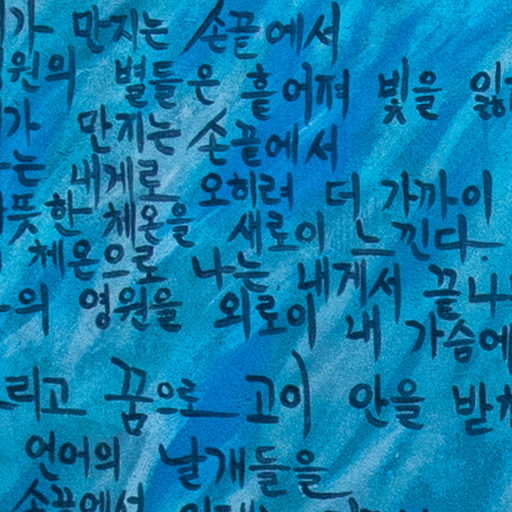 만지는 손끝에서
별들은 흩어져 빛을
만지는 손끝에서
는 내게로 오히려 더 가까이
한 체온을 새로이 느낀다.
체온으로 나는 내게서 끝나
의 영원을 외로이 내 가슴에
꿈으로 고이 안을 받
언어의 날개들을
손끝에서